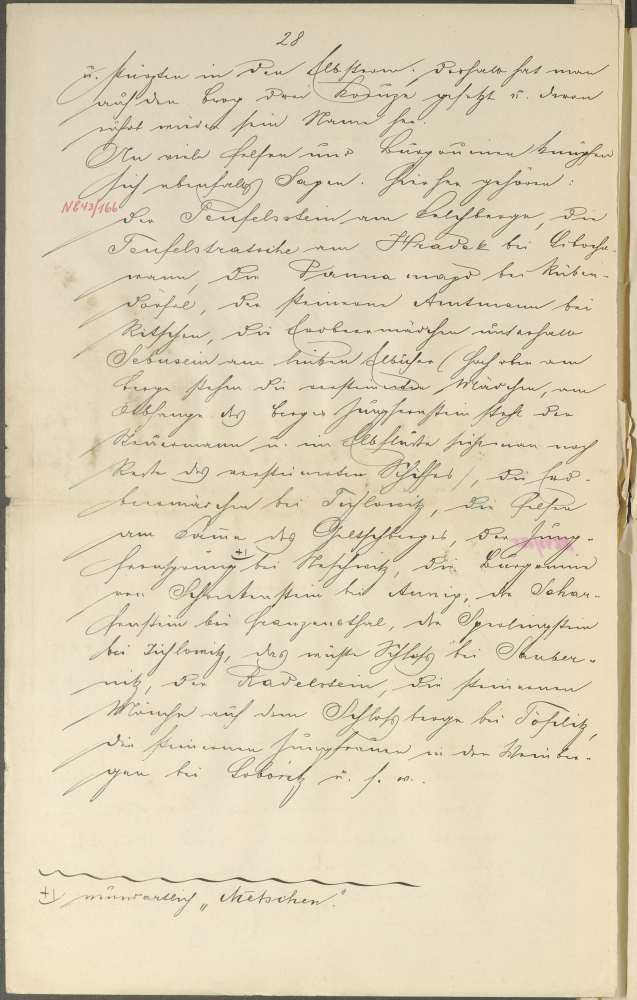 28
u. stürzten in den Elbstrom. Deshalb hat man
auf den Berg drei Kreuze gesetzt u. davon
rührt wieder sein Name her.
An viele Felsen und Burgruinen knüpfen
sich ebenfalls Sagen. Hierher gehören:
NE43/166
Der Teufelsstein am Kelchberge, die
Teufelstratsche am Hradek bei Libocho-
wann, die Panna magd bei Rüben-
dörfel, der steinerne Amtmann bei
Ritschen, die Erdbeermädchen unterhalb
Sebusein am linken Elbufer (hoch oben am
Berge stehen die versteinerten Mädchen, am
Abhange des Berges Jungfernstein steht der
Steuermann u. im Elbflusse sieht man noch
Reste des versteinerten Schiffes), die Erd-
beermädchen bei Tichlowitz, die Felsen
am Saume des Geltschberges, der Jung-
fernsprung +) bei Neschwitz, die Burgruine
von Schreckenstein bei Aussig, der Schar-
fenstein bei Franzensthal, der Sperlingstein
bei Tichlowitz, das wüste Schloss bei Sauber-
nitz, der Radelstein, die steinernen
Mönche auf dem Schlossberge bei Töplitz,
die steinernen Jungfrauen in den Weinber-
gen bei Lobositz u. s. w..
+) mundartlich „Netschen."